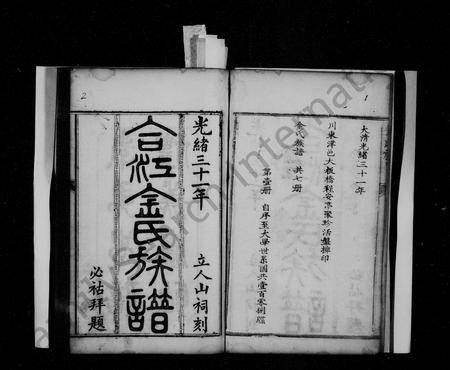 1
大清光緒三十一年
川東津邑大板橋程安亭聚珍活盤擺印
余氏族譜 共七册
第壹册 自序至大學世系圖共壹百零捌牒
2
光緒三十一年
立人山祠刻
合江余氏族譜
必祜拜題